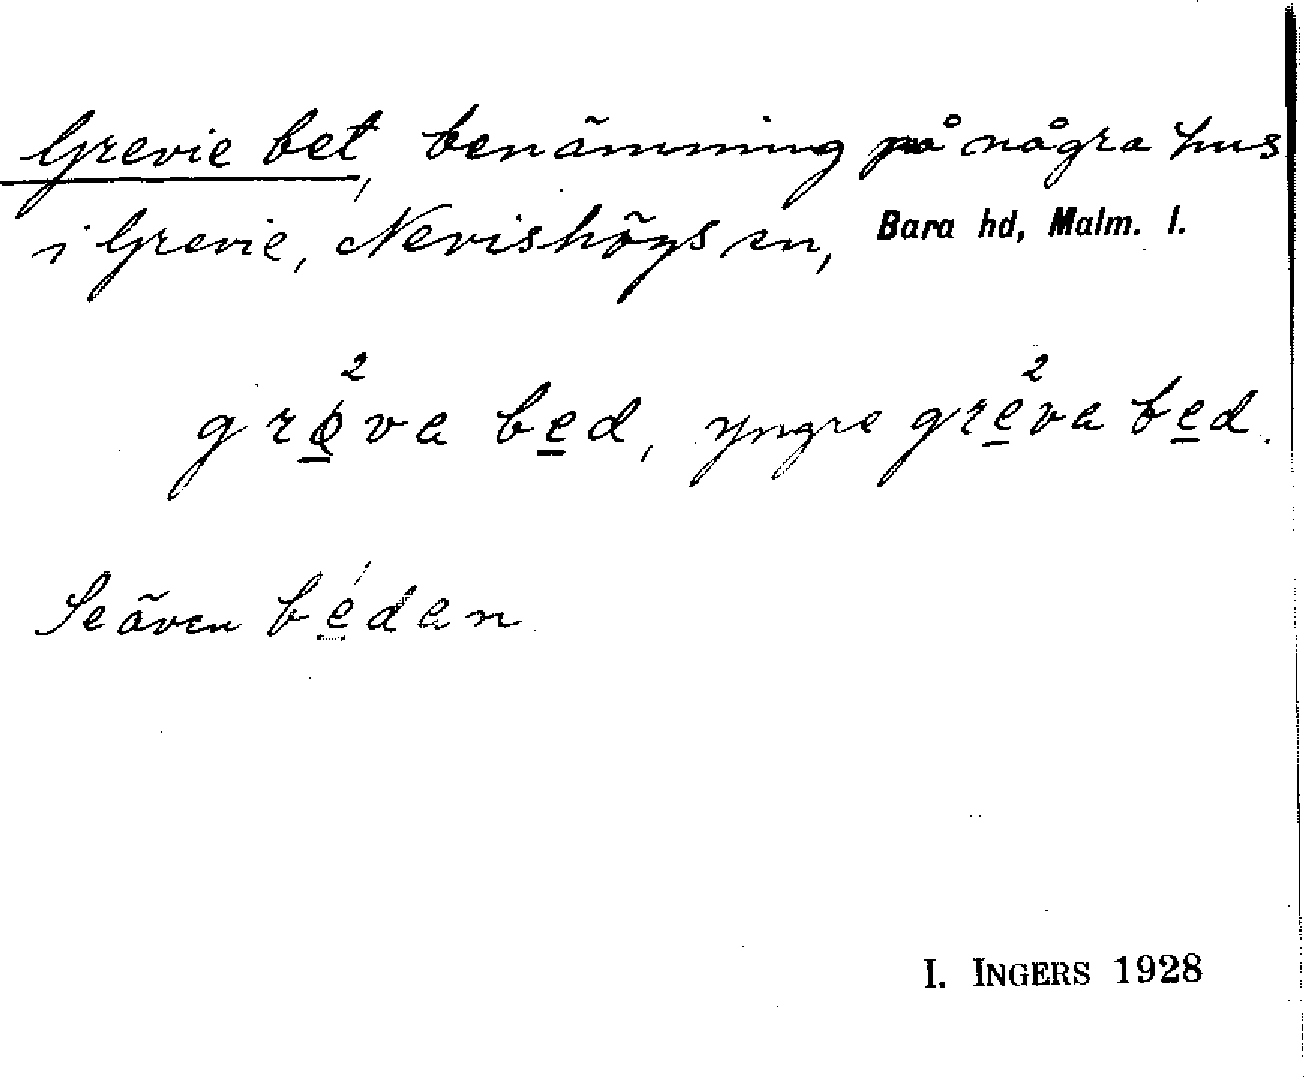 Grevie bet, benämning på några hus
i Grevie, Nevishögs sn, Bara hd, Malm. l.
grø̲²va be̲d, yngre gre̲²va be̲d.
Se även bé̲den
I. INGERS 1928